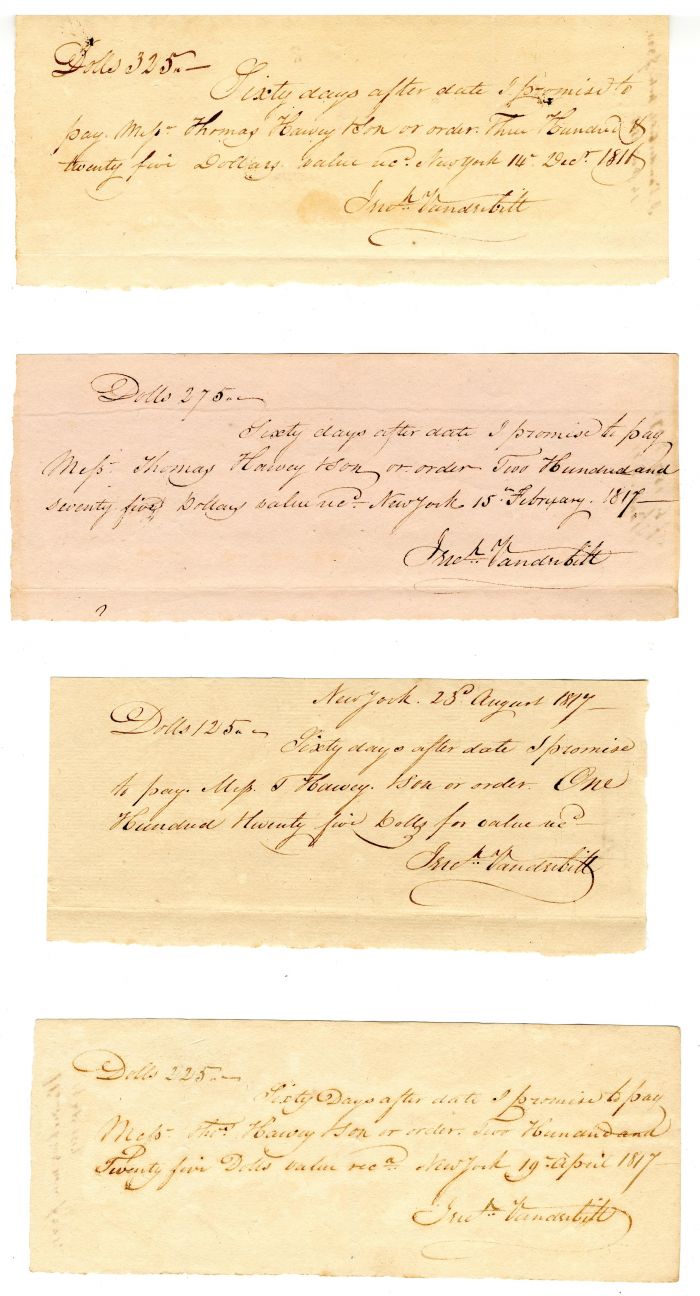 Dolls 325.—
Sixty days after date I promise to
pay Messrs Thomas Hawey & Son or order. Three Hundred &
twenty five Dollars value recd. New York 14th Decr 1816
Jnoh. Vanderbilt
Dolls 275.—
Sixty days after date I promise to pay
Messrs Thomas Hawey & Son or order Two Hundred and
seventy five Dollars value recd. New York 15th February. 1817—
Jnoh. Vanderbilt
New York. 23d August 1817—
Dolls 125.—
Sixty days after date I promise
to pay. Mess. T Hawey. & Son or order. One
Hundred & twenty five Dolls for value recd—
Jnoh. Vanderbilt
Dolls 225.—
Sixty Days after date I promise to pay
Messrs Thos. Hawey & Son or order. Two Hundred and
Twenty five Dolls value recd. New York 19th April 1817—
Jnoh. Vanderbilt